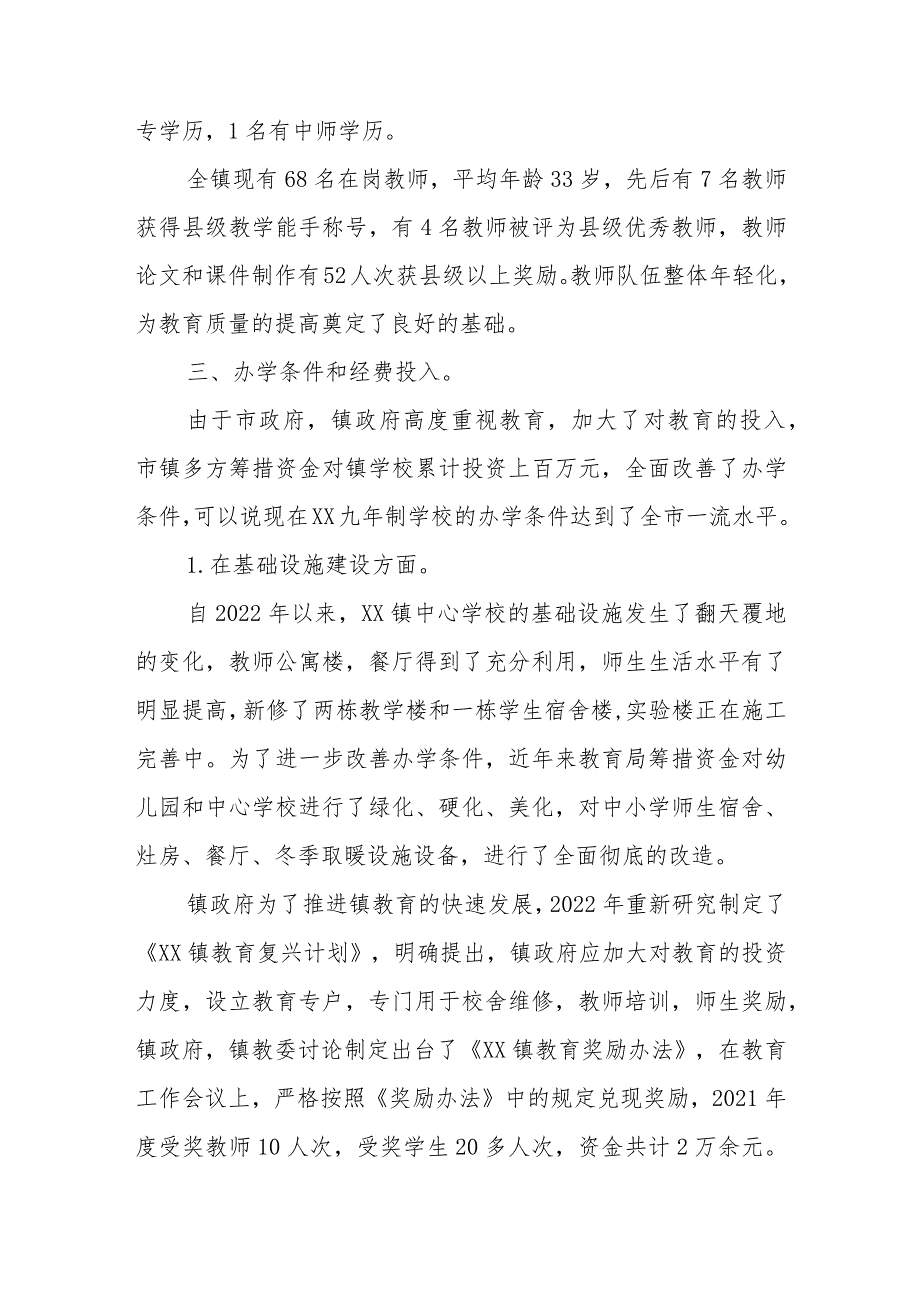 专学历，1 名有中师学历。
全镇现有 68 名在岗教师，平均年龄 33 岁，先后有 7 名教师
获得县级教学能手称号，有 4 名教师被评为县级优秀教师，教师
论文和课件制作有 52 人次获县级以上奖励。教师队伍整体年轻化，
为教育质量的提高奠定了良好的基础。
三、办学条件和经费投入。
由于市政府，镇政府高度重视教育，加大了对教育的投入，
市镇多方筹措资金对镇学校累计投资上百万元，全面改善了办学
条件，可以说现在 XX 九年制学校的办学条件达到了全市一流水平。
1.在基础设施建设方面。
自 2022 年以来，XX 镇中心学校的基础设施发生了翻天覆地
的变化，教师公寓楼，餐厅得到了充分利用，师生生活水平有了
明显提高，新修了两栋教学楼和一栋学生宿舍楼,实验楼正在施工
完善中。为了进一步改善办学条件，近年来教育局筹措资金对幼
儿园和中心学校进行了绿化、硬化、美化，对中小学师生宿舍、
灶房、餐厅、冬季取暖设施设备，进行了全面彻底的改造。
镇政府为了推进镇教育的快速发展，2022 年重新研究制定了
《XX 镇教育复兴计划》，明确提出，镇政府应加大对教育的投资
力度，设立教育专户，专门用于校舍维修，教师培训，师生奖励，
镇政府，镇教委讨论制定出台了《XX 镇教育奖励办法》，在教育
工作会议上，严格按照《奖励办法》中的规定兑现奖励，2021 年
度受奖教师 10 人次，受奖学生 20 多人次，资金共计 2 万余元。